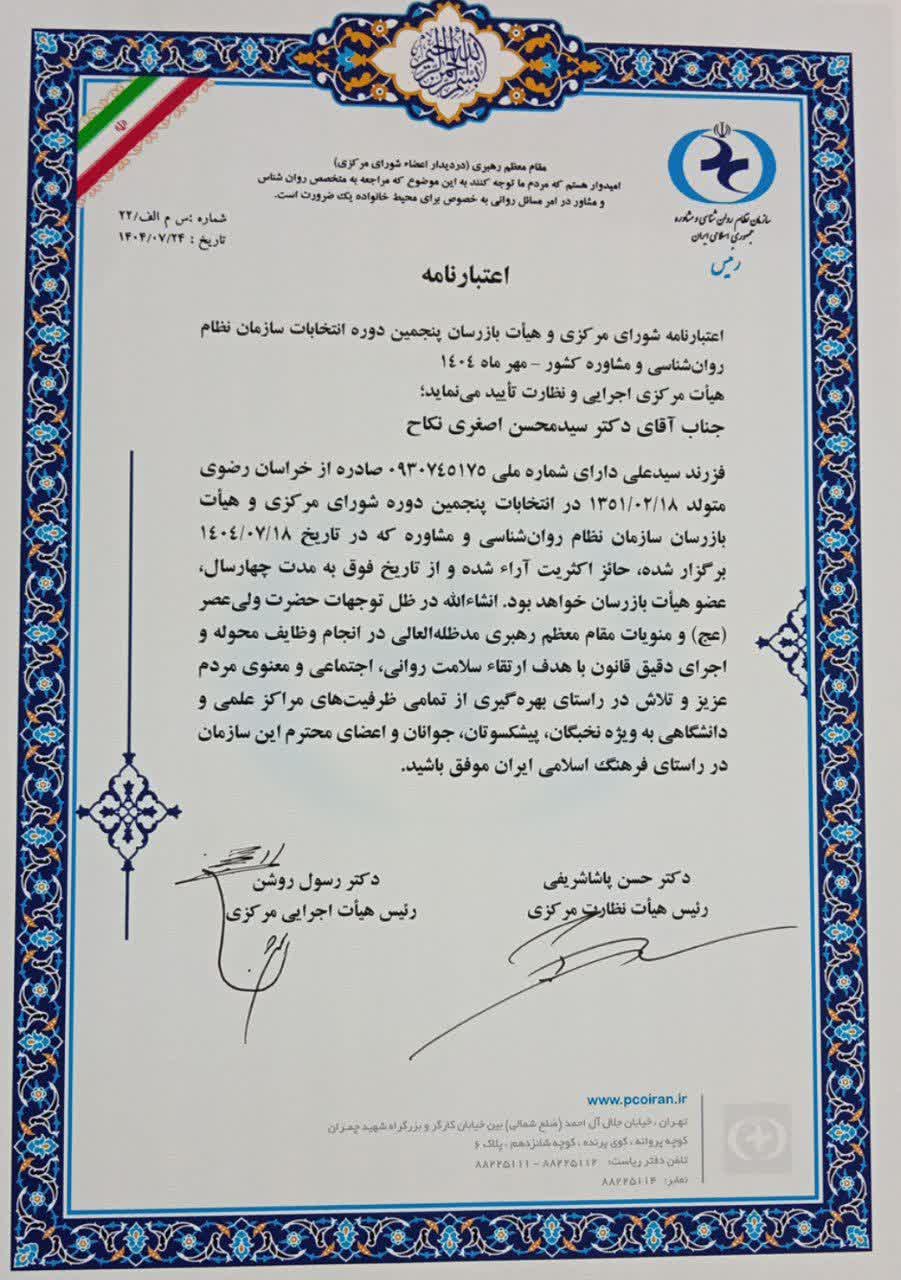 بسم الله الرحمن الرحیم
سازمان نظام روان شناسی و مشاوره
جمهوری اسلامی ایران
رئیس
مقام معظم رهبری (دردیدار اعضاء شورای مرکزی)
امیدوار هستم که مردم ما توجه کنند به این موضوع که مراجعه به متخصص روان شناس
و مشاور در امر مسائل روانی به خصوص برای محیط خانواده یک ضرورت است.
شماره :س م الف/۲۲
تاریخ : ۱۴۰۴/۰۷/۲۴
اعتبارنامه
اعتبارنامه شورای مرکزی و هیأت بازرسان پنجمین دوره انتخابات سازمان نظام
روان‌شناسی و مشاوره کشور – مهر ماه ۱۴۰۴
هیأت مرکزی اجرایی و نظارت تأیید می‌نماید؛
جناب آقای دکتر سیدمحسن اصغری نکاح
فرزند سیدعلی دارای شماره ملی ۰۹۳۰۷۴۵۱۷۵ صادره از خراسان رضوی
متولد ۱۳۵۱/۰۲/۱۸ در انتخابات پنجمین دوره شورای مرکزی و هیأت
بازرسان سازمان نظام روان‌شناسی و مشاوره که در تاریخ ۱۴۰۴/۰۷/۱۸
برگزار شده، حائز اکثریت آراء شده و از تاریخ فوق به مدت چهارسال،
عضو هیأت بازرسان خواهد بود. انشاءالله در ظل توجهات حضرت ولی‌عصر
(عج) و منویات مقام معظم رهبری مدظله‌العالی در انجام وظایف محوله و
اجرای دقیق قانون با هدف ارتقاء سلامت روانی، اجتماعی و معنوی مردم
عزیز و تلاش در راستای بهره‌گیری از تمامی ظرفیت‌های مراکز علمی و
دانشگاهی به ویژه نخبگان، پیشکسوتان، جوانان و اعضای محترم این سازمان
در راستای فرهنگ اسلامی ایران موفق باشید.
دکتر حسن پاشاشریفی
رئیس هیأت نظارت مرکزی
دکتر رسول روشن
رئیس هیأت اجرایی مرکزی
www.pcoiran.ir
تهران ، خیابان جلال آل احمد (ضلع شمالی) بین خیابان کارگر و بزرگراه شهید چمران
کوچه پروانه ، کوی پرنده ، کوچه شانزدهم ، پلاک ۶
تلفن دفتر ریاست: ۸۸۲۲۵۱۱۲ – ۸۸۲۲۵۱۱۱
نمابر: ۸۸۲۲۵۱۱۴